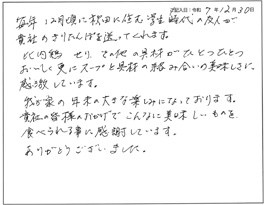 記入日：令和 7年 12月 30日
毎年 12月頃に秋田に住む学生時代の友人が
貴社のきりたんぽを送ってくれます。
比内鶏 せり、その他の具材がひとつひとつ
おいしく更にスープと具材の絡み合いの美味しさに
感激しています。
我が家の年末の大きな楽しみになっております。
貴社の皆様のおかげでこんなに美味しいものを
食べられる事に感謝しています。
ありがとうございました。